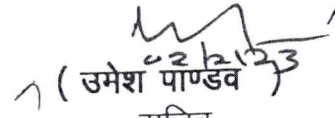 02/2/23
( उमेश पाण्डव )